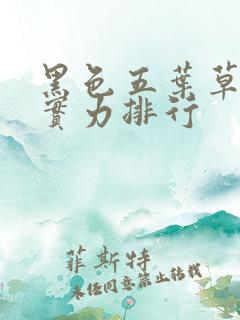 黑色五葉草
實力排行
菲斯特
未经同意禁止转载